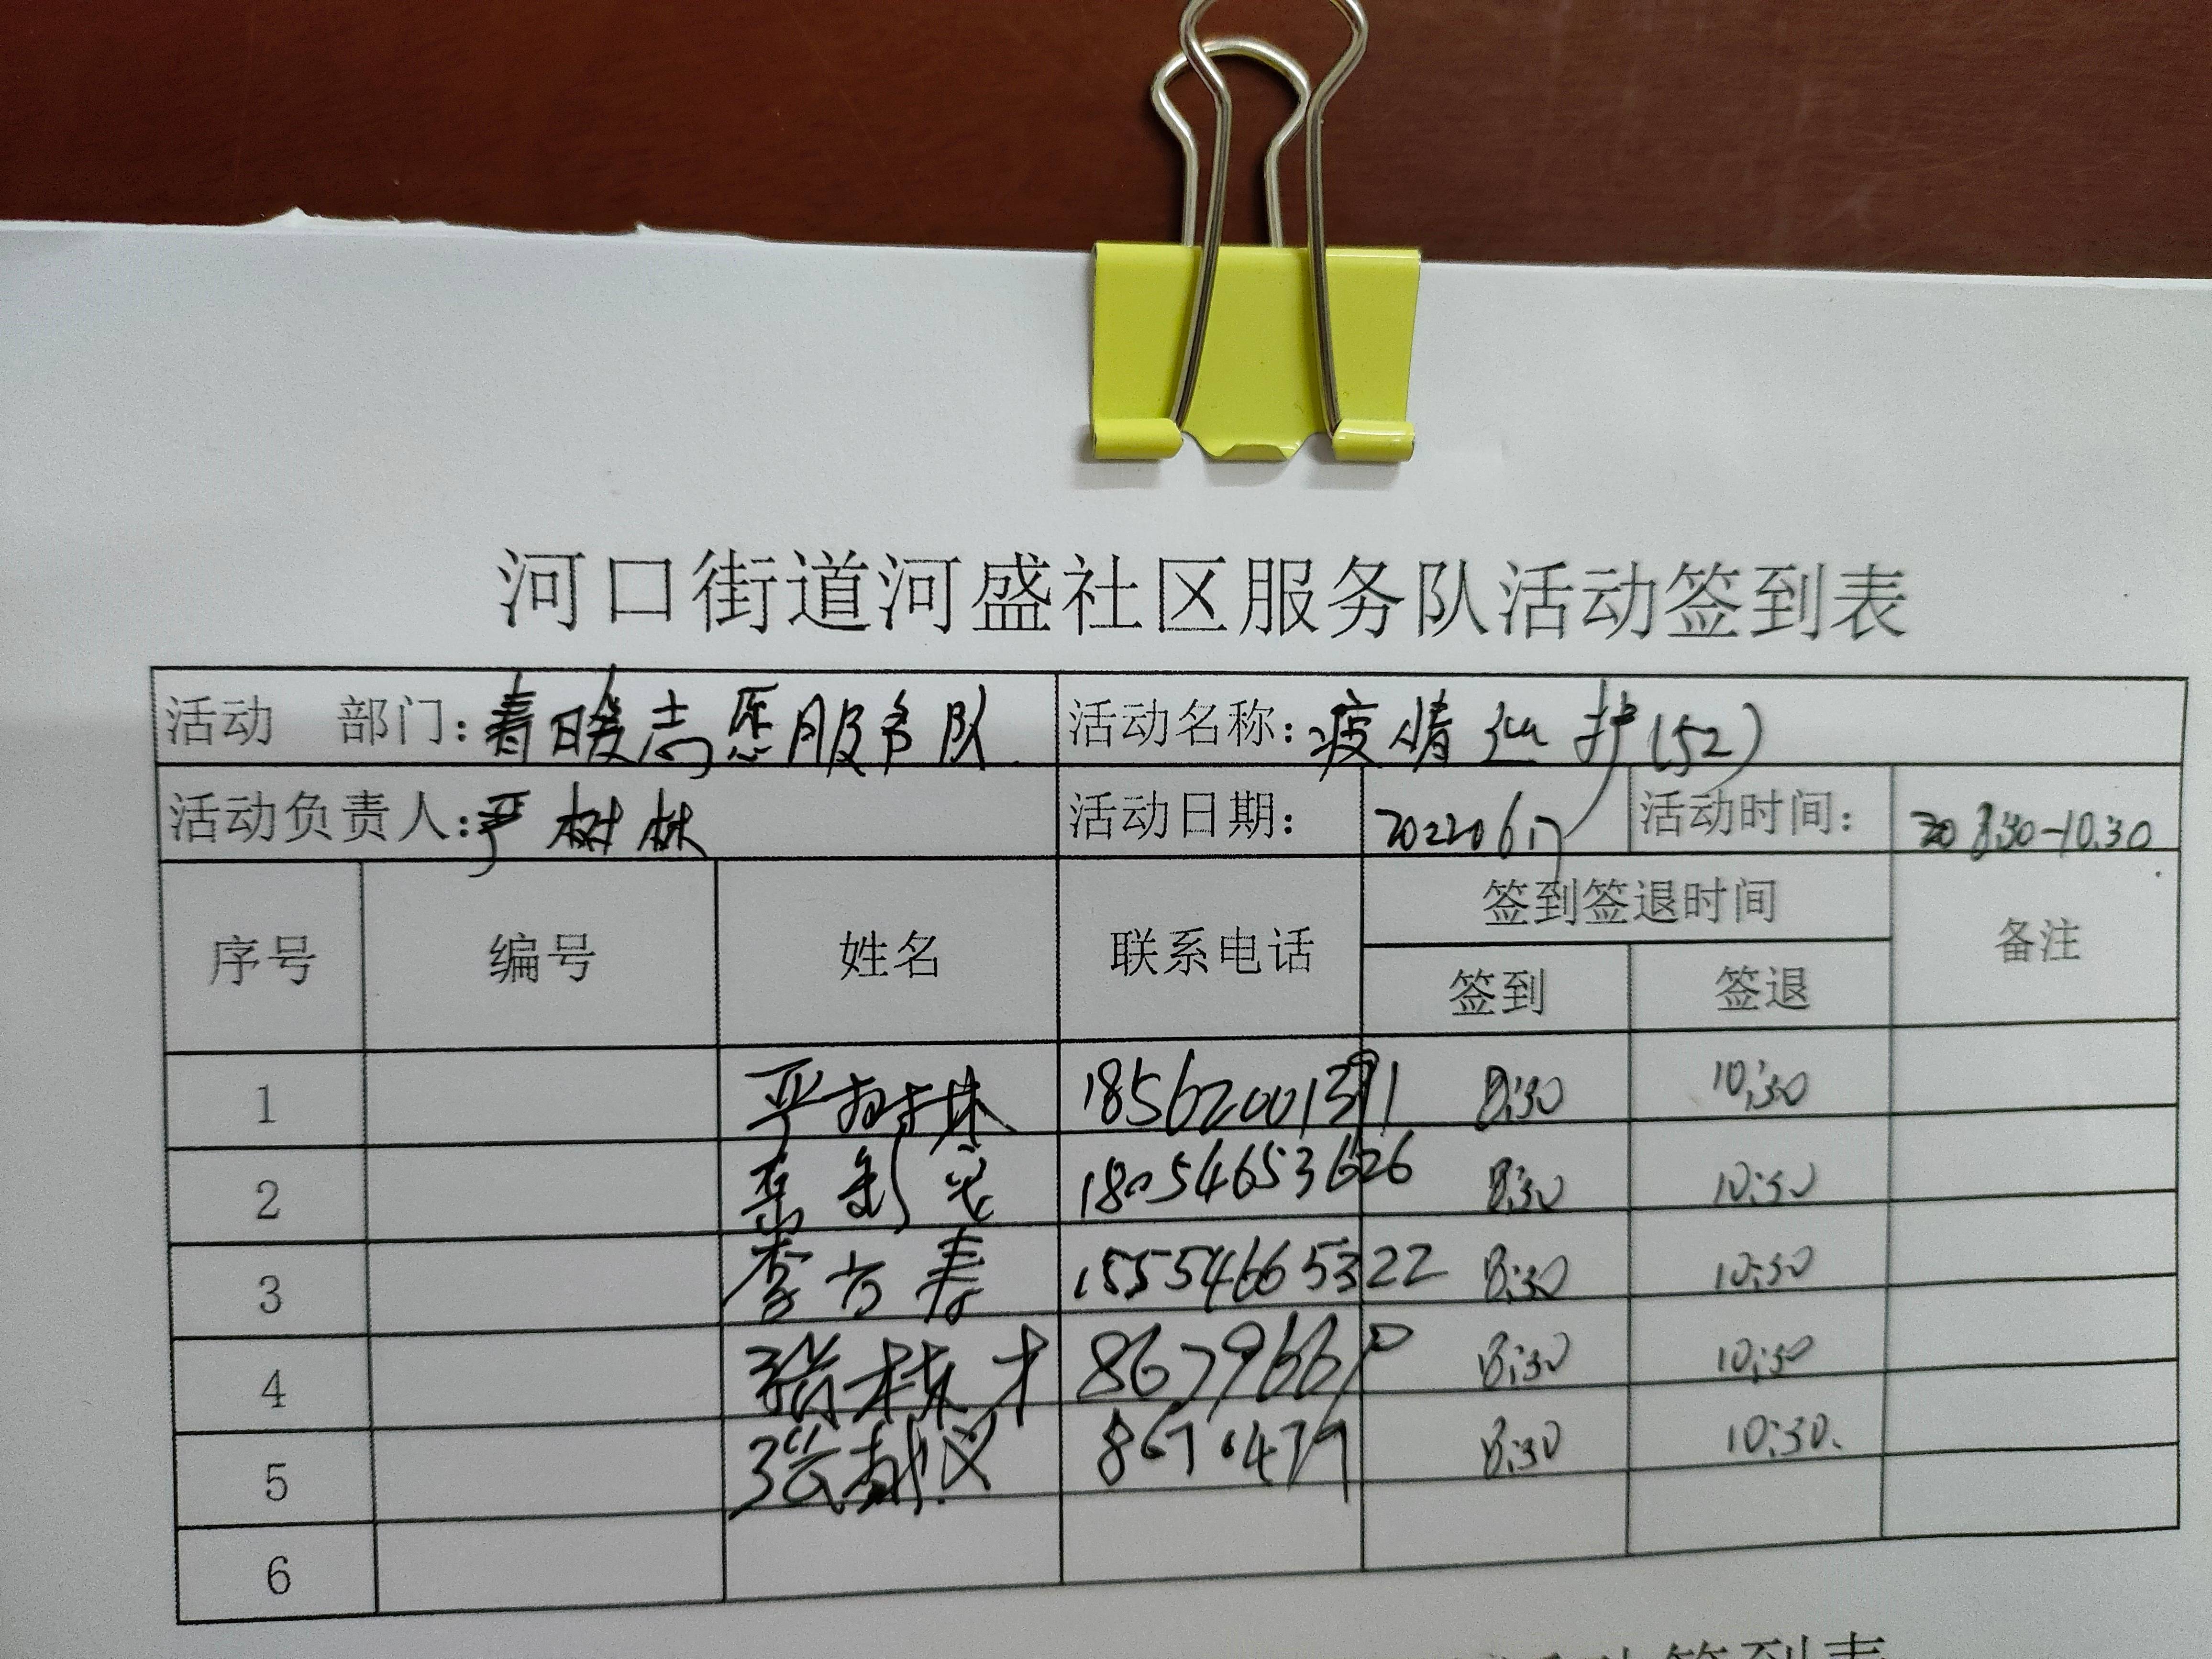 河口街道河盛社区服务队活动签到表
活动 部门：春暖志愿服务队 活动名称：疫情 护(52)
活动负责人：严树林 活动日期： 20220617 活动时间： 8:30-10:30
序号 编号 姓名 联系电话 签到签退时间 备注
签到 签退
1 严树林 18562001371 8:30 10:30
2 18054653626 8:30 10:30
3 李方春 15554665322 8:30 10:30
4 张 才 8:30 10:30
5 张献义 8:30 10:30.
6
签到表